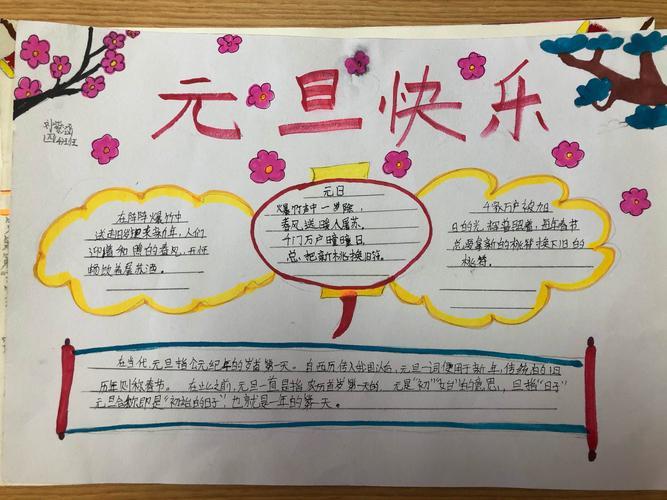 元旦快乐
在阵阵爆竹中
送走旧岁迎来新年,人们
迎着和煦的春风,开怀
畅饮着屠苏酒。
元日
爆竹声中一岁除,
春风送暖入屠苏。
千门万户瞳瞳日,
总把新桃换旧符。
日的光 每年春节
总要拿新的桃符换下旧的
桃符。
在当代,元旦指公元纪年的岁首第一天。自西历传入我国以后,元旦一词便用于新年,传统的旧
历年则称春节。在此之前,元旦一直是指农历岁首第一天的。元是“初”“始”的意思,旦指“日子”
元旦合称即是“初始的日子”也就是一年的第一天。